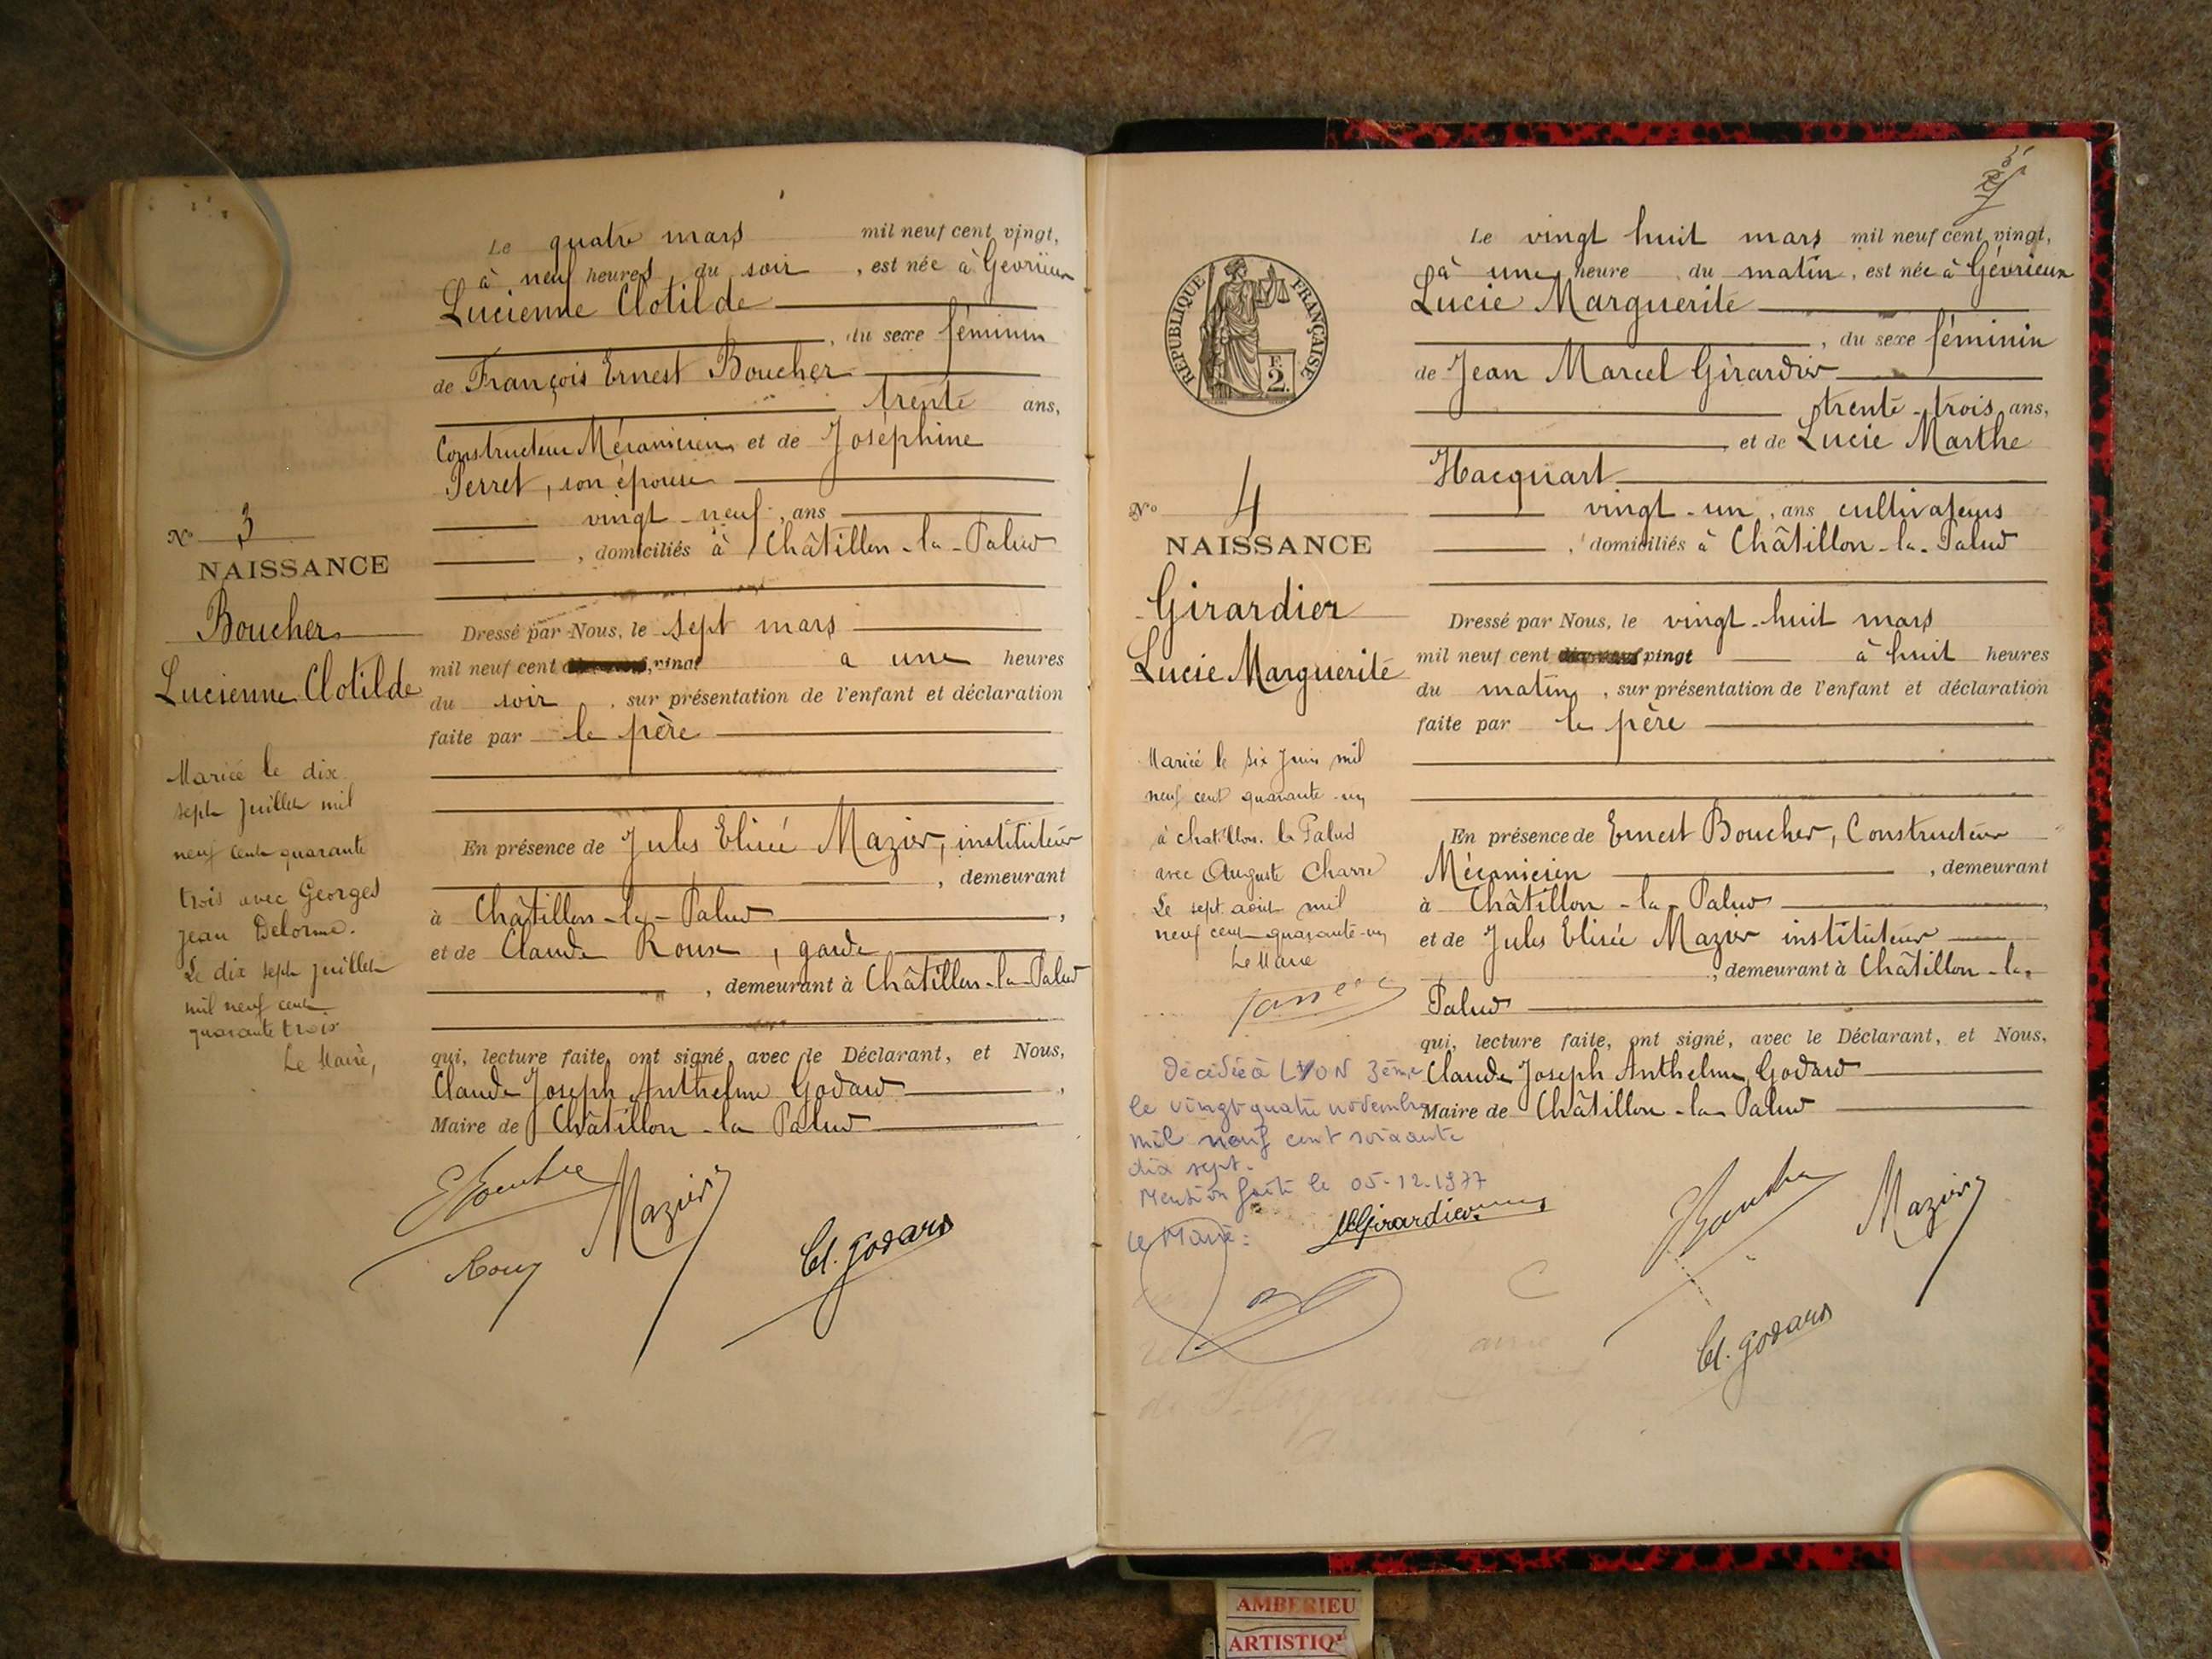 Le quatre mars mil neuf cent vingt,
à neuf heures du soir, est née à Gévrieux
Lucienne Clotilde
, du sexe féminin
de François Ernest Boucher
trente ans,
Constructeur Mécanicien et de Joséphine
Perret, son épouse
vingt-neuf, ans
, domiciliés à Châtillon-la-Palud
No 3
NAISSANCE
Boucher
Lucienne Clotilde
Dressé par Nous, le sept mars
mil neuf cent vingt à une heures
du soir, sur présentation de l'enfant et déclaration
faite par le père
Mariée le dix
sept juillet mil
neuf cent quarante
trois avec Georges
Jean Delorme.
Le dix sept juillet
mil neuf cent
quarante trois
Le Maire,
En présence de Jules Elisée Mazier, instituteur
, demeurant
à Châtillon-la-Palud,
et de Claude Roux, garde
, demeurant à Châtillon-la-Palud
qui, lecture faite, ont signé avec le Déclarant, et Nous,
Claude Joseph Anthelme Godard,
Maire de Châtillon-la Palud
EBoucher
Mazier
Roux
Cl. Godard
RÉPUBLIQUE FRANÇAISE
2 F.
Le vingt huit mars mil neuf cent vingt,
à une heure du matin, est née à Gévrieux
Lucie Marguerite
, du sexe féminin
de Jean Marcel Girardier
trente-trois ans,
et de Lucie Marthe
Hacquart
vingt-un, ans cultivateurs
, domiciliés à Châtillon-la-Palud
No 4
NAISSANCE
Girardier
Lucie Marguerite
Dressé par Nous, le vingt-huit mars
mil neuf cent vingt à huit heures
du matin, sur présentation de l'enfant et déclaration
faite par le père
Mariée le six Juin mil
neuf cent quarante-un
à chatillon. la Palud
avec Auguste Charre
Le sept août mil
neuf cent quarante-un
Le Maire
En présence de Ernest Boucher, Constructeur
Mécanicien, demeurant
à Châtillon-la-Palud,
et de Jules Elisée Mazier instituteur
, demeurant à Châtillon-la-
Palud
qui, lecture faite, ont signé, avec le Déclarant, et Nous,
Claude Joseph Anthelme Godard
Maire de Châtillon-la-Palud
Décédée à LYON 3ème
le vingt quatre novembre
mil neuf cent soixante
dix sept.
Mention faite le 05-12-1977
Le Maire:
Girardier
Boucher
Mazier
Cl. Godard
AMBERIEU
ARTISTIQ